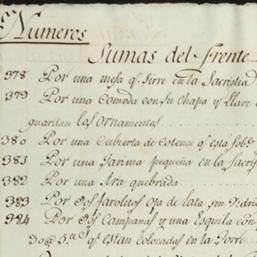 Numeros
Sumas del frente...
378 Por una mesa q.e sirve en la Sacristia
379 Por una Comoda con su Chapa y Llave
guardan los ornamentos
380 Por una Cubierta de Cotence q.e está sob
381 Por una Tarima pequeña en la Sacris
382 Por una Ara quebrada
383 Por dos faroles oja de lata sin vidri
384 Por dos Campanas y una Esquila con
q.e estan colocadas en la Torre